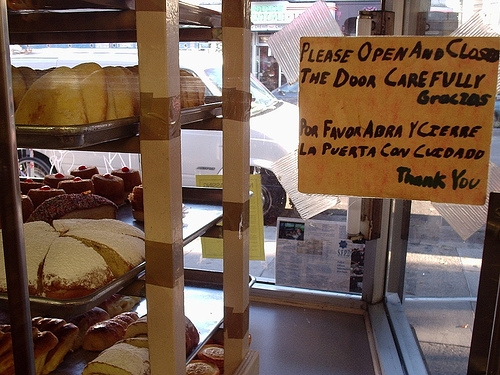 PLEASE OPEN AND CLOSE
THE DOOR CAREFULLY
GRACIAS
POR FAVOR ABRA Y CIERRE
LA PUERTA CON CUIDADO
THANK YOU